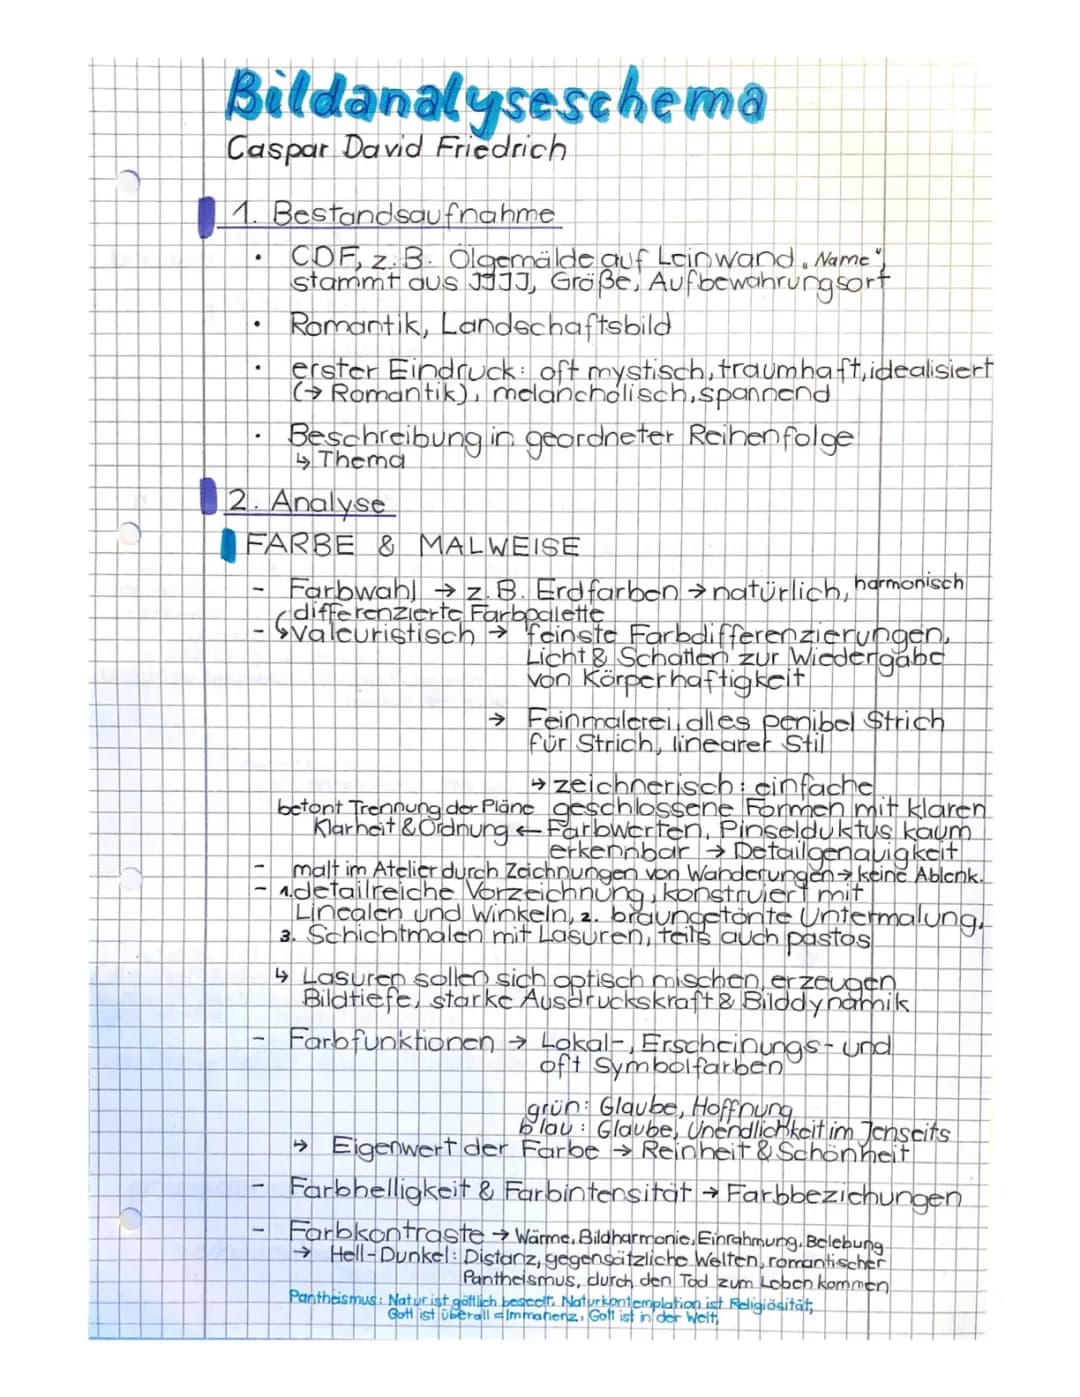 Bildanalyseschema
Caspar David Friedrich
1. Bestandsaufnahme
• CDF, z.B. Ölgemälde auf Leinwand „Name“,
stammt aus JJJJ, Größe, Aufbewahrungsort
• Romantik, Landschaftsbild
• erster Eindruck: oft mystisch, traumhaft, idealisiert
(→ Romantik), melancholisch, spannend
• Beschreibung in geordneter Reihenfolge
↳ Thema
2. Analyse
FARBE & MALWEISE
- Farbwahl → z.B. Erdfarben → natürlich, harmonisch
differenzierte Farbpalette
- ↳ valeuristisch → feinste Farbdifferenzierungen,
Licht & Schatten zur Wiedergabe
von Körperhaftigkeit
→ Feinmalerei, alles penibel Strich
für Strich, linearer Stil
→ zeichnerisch: einfache
betont Trennung der Pläne geschlossene Formen mit klaren
Klarheit & Ordnung ← Farbwerten, Pinselduktus kaum
erkennbar → Detailgenauigkeit
- malt im Atelier durch Zeichnungen von Wanderungen → keine Ablenk.
- 1. detailreiche Vorzeichnung, konstruiert mit
Linealen und Winkeln, 2. braungetönte Untermalung,
3. Schichtmalen mit Lasuren, teils auch pastos
↳ Lasuren sollen sich optisch mischen, erzeugen
Bildtiefe, starke Ausdruckskraft & Bilddynamik
- Farbfunktionen → Lokal-, Erscheinungs- und
oft Symbolfarben
grün: Glaube, Hoffnung
blau: Glaube, Unendlichkeit im Jenseits
→ Eigenwert der Farbe → Reinheit & Schönheit
- Farbhelligkeit & Farbintensität → Farbbeziehungen
- Farbkontraste → Wärme, Bildharmonie, Einrahmung, Belebung
→ Hell-Dunkel: Distanz, gegensätzliche Welten, romantischer
Pantheismus, durch den Tod zum Leben kommen
Pantheismus: Natur ist göttlich beseelt, Naturkontemplation ist Religiösität,
Gott ist überall = Immanenz, Gott ist in der Welt,